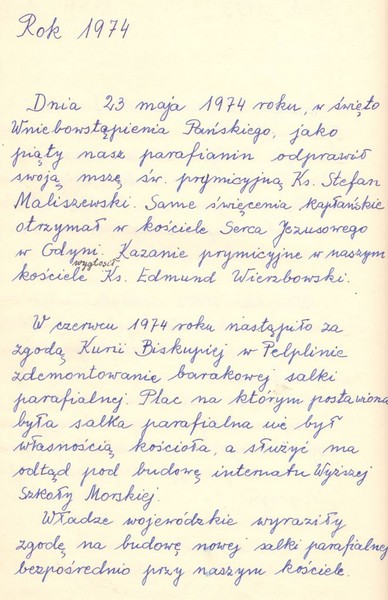 Rok 1974
Dnia 23 maja 1974 roku, w święto
Wniebowstąpienia Pańskiego, jako
piąty nasz parafianin odprawił
swoją mszę św. prymicyjną Ks. Stefan
Maliszewski. Same święcenia kapłańskie
otrzymał w kościele Serca Jezusowego
w Gdyni. Kazanie prymicyjne w naszym
kościele wygłosił Ks. Edmund Wierzbowski.
W czerwcu 1974 roku nastąpiło za
zgodą Kurii Biskupiej w Pelplinie
zdemontowanie barakowej salki
parafialnej. Plac na którym postawiona
była salka parafialna nie był
własnością kościoła, a służyć ma
odtąd pod budowę internatu Wyższej
Szkoły Morskiej.
Władze wojewódzkie wyraziły
zgodę na budowę nowej salki parafialnej
bezpośrednio przy naszym kościele.